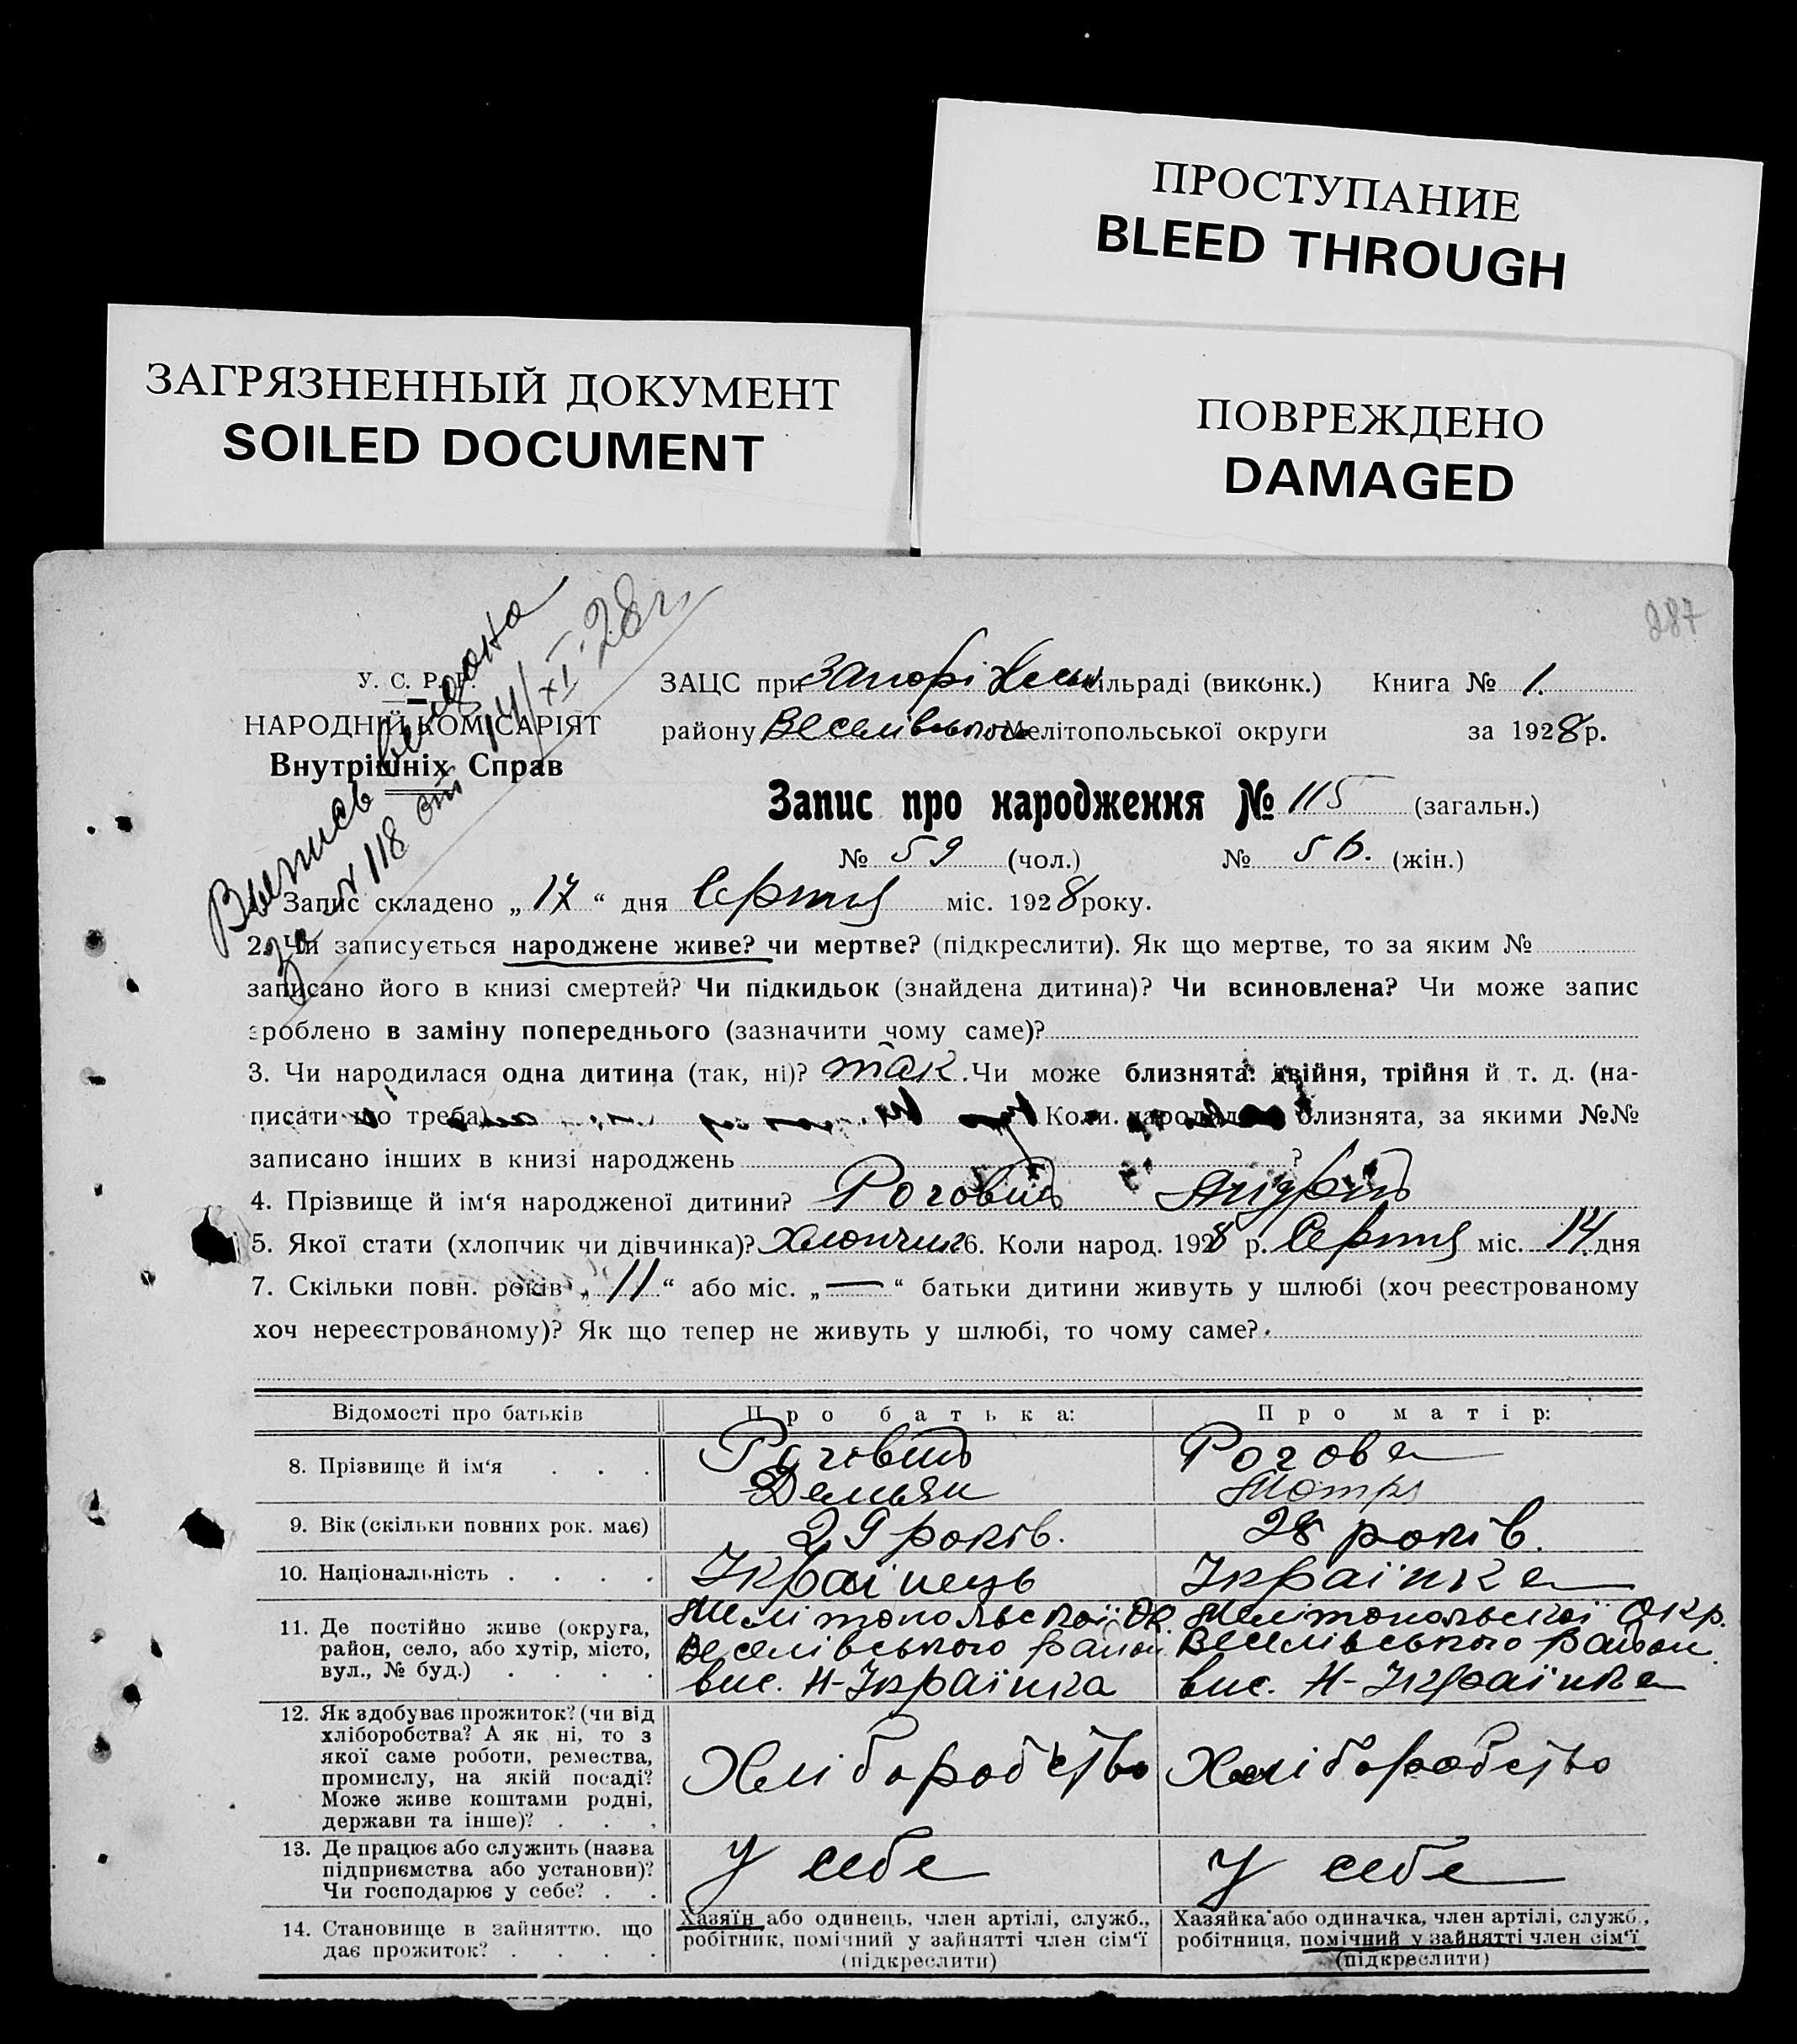 ПРОСТУПАНИЕ
BLEED THROUGH
ЗАГРЯЗНЕННЫЙ ДОКУМЕНТ
SOILED DOCUMENT
ПОВРЕЖДЕНО
DAMAGED
287
Выпись выдана
за № 118 от 14/XI-28 г.
У. С. Р. Р.
НАРОДНІЙ КОМІСАРІЯТ
Внутрішніх Справ
ЗАЦС при Запоріжськ. сільраді (виконк.) Книга № 1.
району Веселівського Мелітопольської округи за 1928 р.
Запис про народження № 115 (загальн.)
№ 59 (чол.) № 56. (жін.)
Запис складено „17“ дня Серпня міс. 1928 року.
2. Чи записується народжене живе? чи мертве? (підкреслити). Як що мертве, то за яким №
записано його в книзі смертей? Чи підкидьок (знайдена дитина)? Чи всиновлена? Чи може запис
зроблено в заміну попереднього (зазначити чому саме)?
3. Чи народилася одна дитина (так, ні)? так. Чи може близнята: двійня, трійня й т. д. (на-
писати що треба) Коли народилися близнята, за якими №№
записано інших в книзі народжень ?
4. Прізвище й ім‘я народженої дитини? Роговий Андрій
5. Якої стати (хлопчик чи дівчинка)? Хлопчик 6. Коли народ. 1928 р. Серпня міс. 14 дня
7. Скільки повн. років „11“ або міс. „—“ батьки дитини живуть у шлюбі (хоч реєстрованому
хоч нереєстрованому)? Як що тепер не живуть у шлюбі, то чому саме?
Відомості про батьків Про батька: Про матір:
8. Прізвище й ім‘я . . . Роговий Демьян Рогова Мотря
9. Вік (скільки повних рок. має) 29 років. 28 років.
10. Національність . . . . Українець Українка
11. Де постійно живе (округа, Мелітопольської Ок. Мелітопольської Окр.
район, село, або хутір, місто, Веселівського район. Веселівського район.
вул., № буд.) . . . . вис. Н-Українка вис. Н-Українка
12. Як здобуває прожиток? (чи від
хліборобства? А як ні, то з
якої саме роботи, ремества,
промислу, на якій посаді? Хліборобство Хліборобство
Може живе коштами родні,
держави та інше)? . . .
13. Де працює або служить (назва
підприємства або установи)? У себе У себе
Чи господарює у себе? . .
14. Становище в зайняттю, що Хазяїн або одинець, член артілі, служб., Хазяйка або одиначка, член артілі, служб.,
дає прожиток? . . . . робітник, помічний у зайнятті член сім‘ї робітниця, помічний у зайнятті член сім‘ї
(підкреслити) (підкреслити)